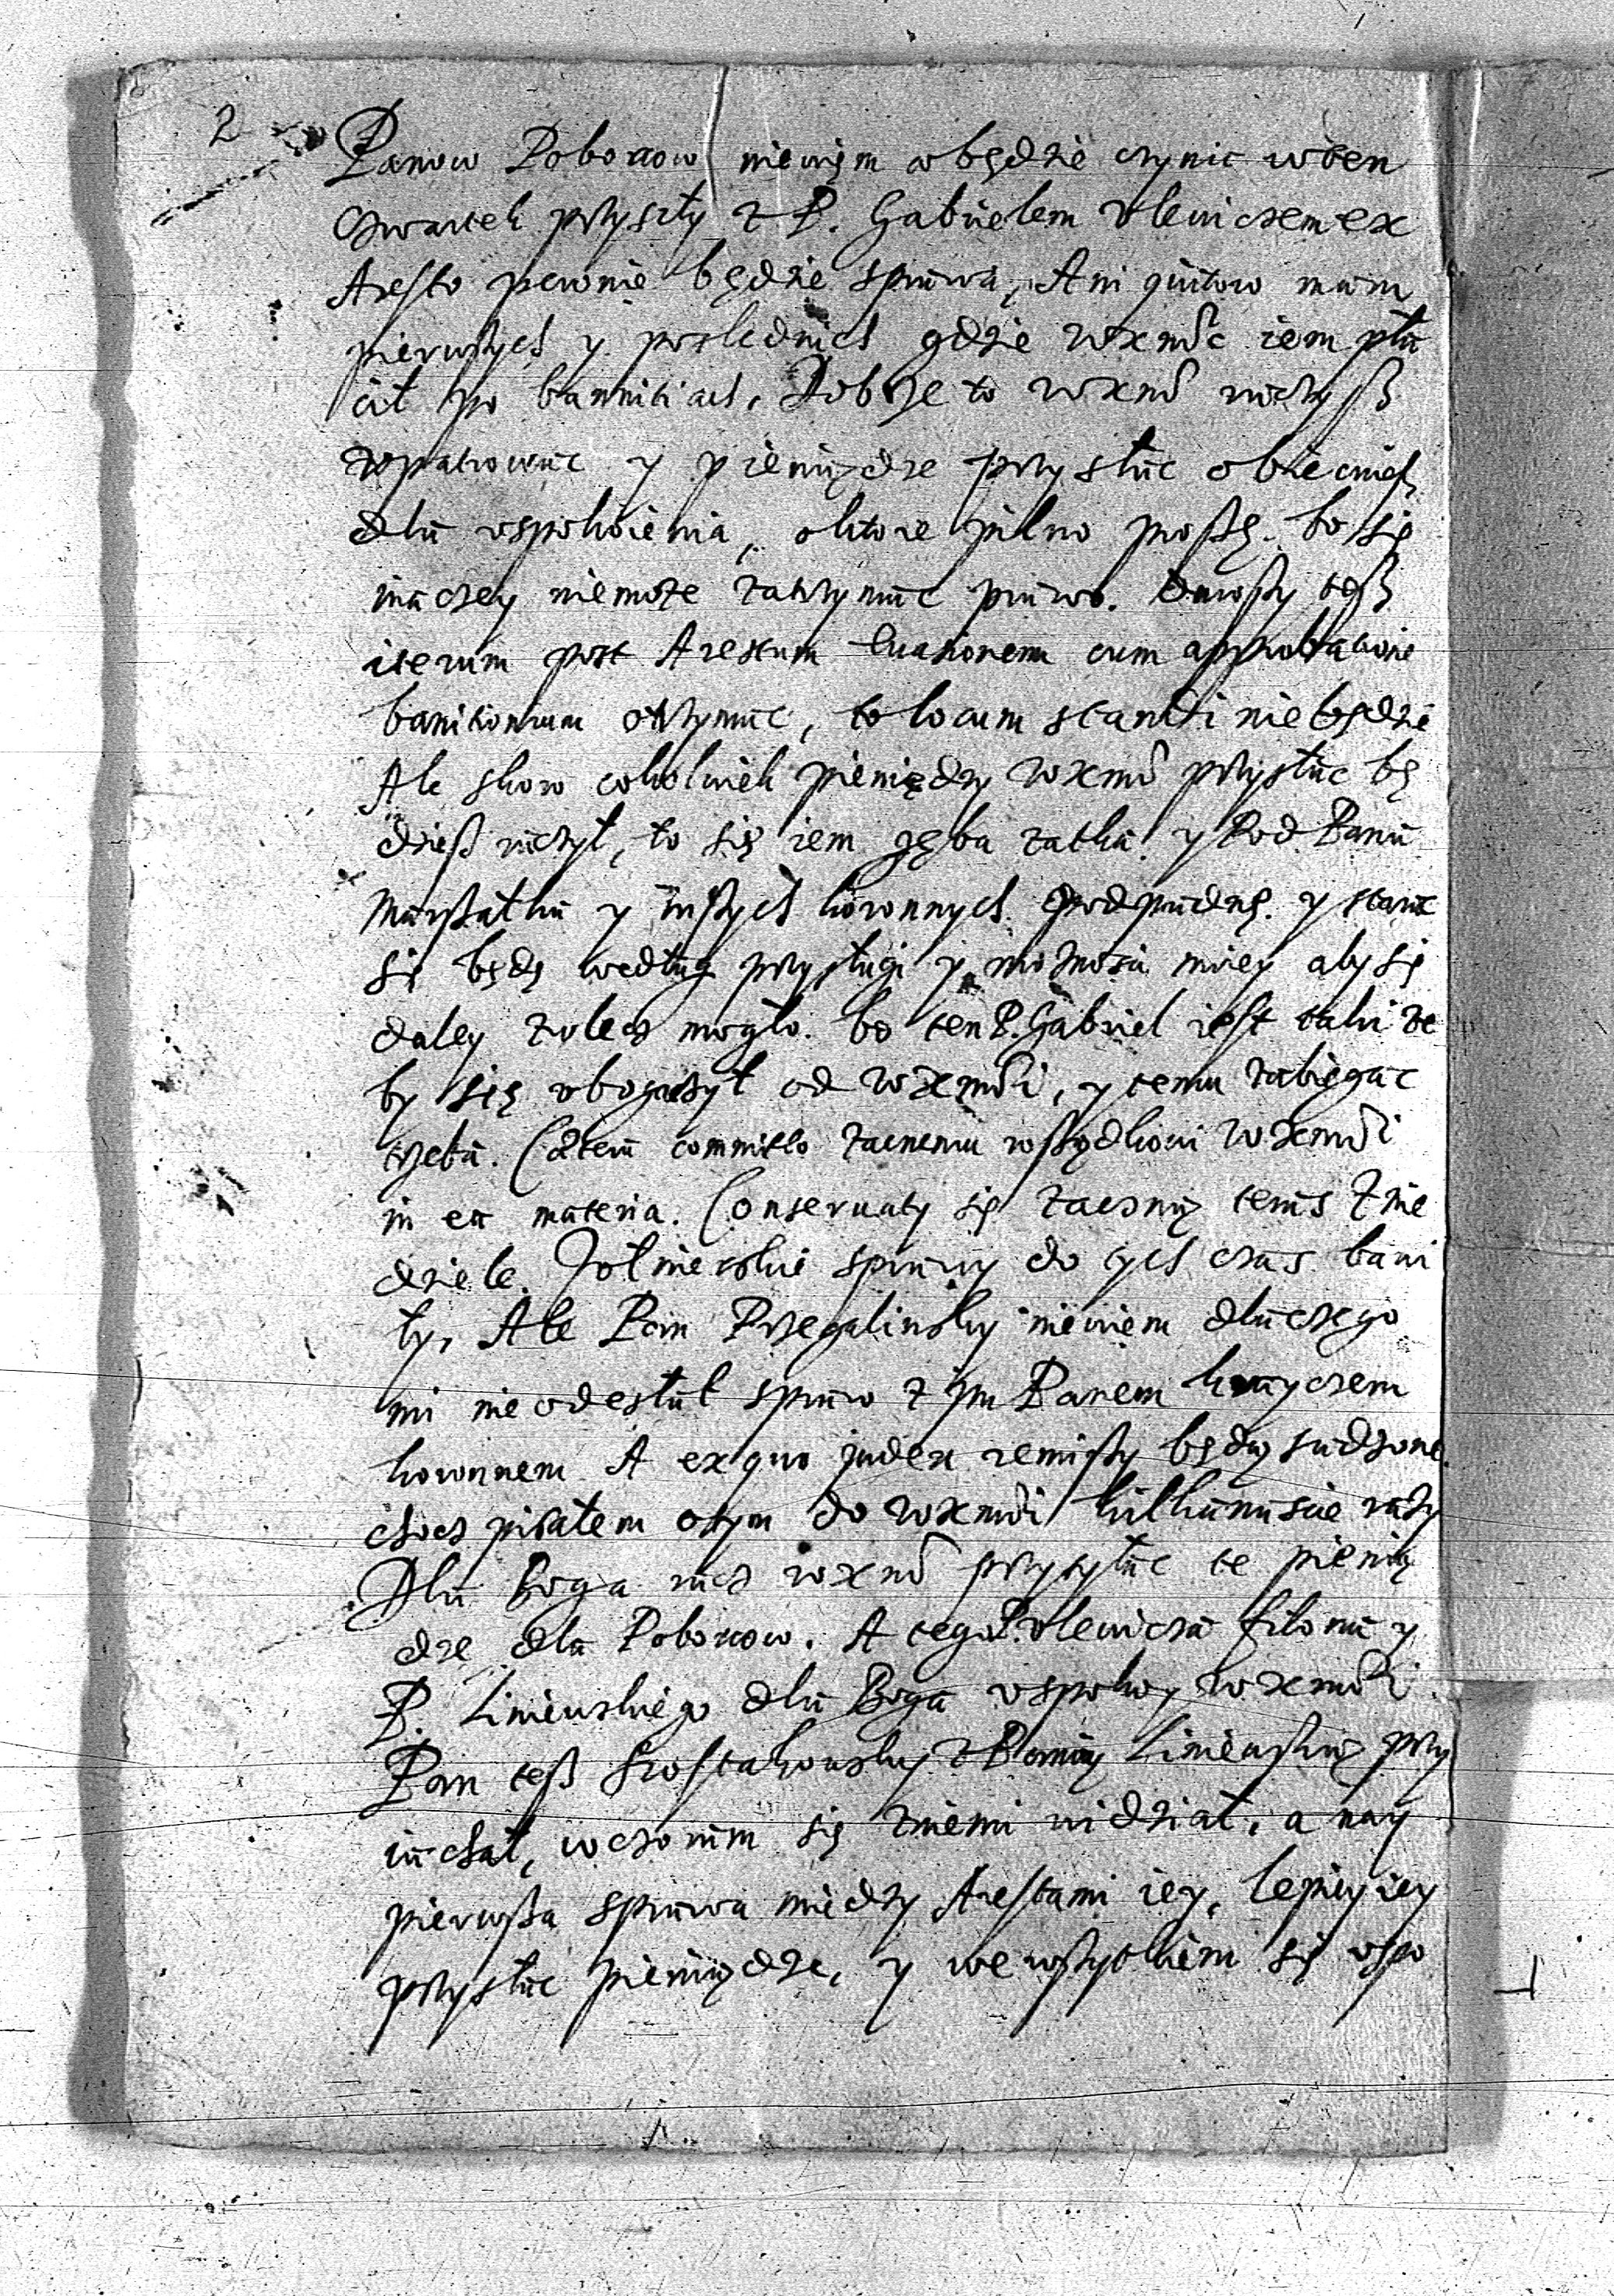 2
Panow Poborcow niewięm co będzie czynic wten
Czwartek przyszły z P. Gabrielem Vlewiczem ex
Aresto pewnie będzie sprawa, Ani quitow mam
pierwszych y poslednich gdzie wxmsc iem pła
cił po bannitiach. Dobrze to wxms raczysz
vpatrowac y pieniądze przysłac obiecuiesz
dla vspokoienia, oktore pilno proszę. bo się
inaczey niemoże zatrzymac prawo. tesz
iterum post Arestum Euasionem cum approbatione
banitionum otrzymac, to locum standi niebędzie
Ale skoro cokolwiek pieniędzy wxms przysłac bę
dziesz raczył, to się iem gęba zatka y Pod Pana
Marszałka y inszych koronnych podpadnę. y starac
się będę według przysługi y możnosci moiey aby się
daley zwlec mogło. bo ten P. Gabriel iest taki że
by się vbogaczył od wxmsci, y temu zabiegac
trzeba. Cætera committo zacnemu rozsądkowi wxmsci
in ea materia. Conservaty się zaczną teras Znie
dziele. Żołnierskie sprawy do tych czas bani
ty, Ale Pan Przegalinsky niewiem dlaczego
mi nie odesłał spraw z ym Panem
koronnem A ex quo judex remissy będą sądzone
choc pisałem otym do wxmsci kilkanascie razy
Dla Boga racz wxms przysyłac te pienią
dze dla Poborcow. A tego P. Vlewicza Filona y
P. Liniewskiego dla Boga vspokoy wxmsci
Pan tesz Szostakowsky z Panią Liniewską przy
iachał, wczoram się zniemi widział, a nay
pierwsza sprawa między Arestami iey, lepiey iey
przysłac pieniądze, y wewszytkiem się vspo